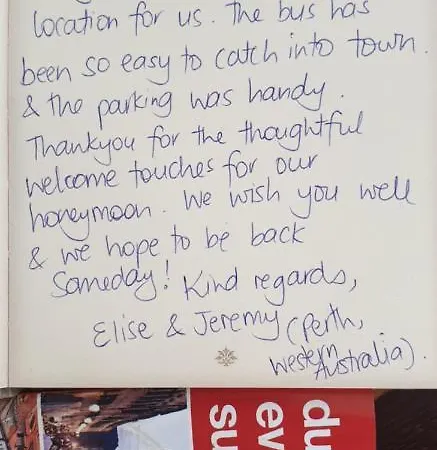 location for us. The bus has
been so easy to catch into town.
& the parking was handy.
Thankyou for the thoughtful
welcome touches for our
honeymoon. We wish you well
& we hope to be back
Someday! Kind regards,
Elise & Jeremy (Perth,
Western
Australia).
du
ev
su